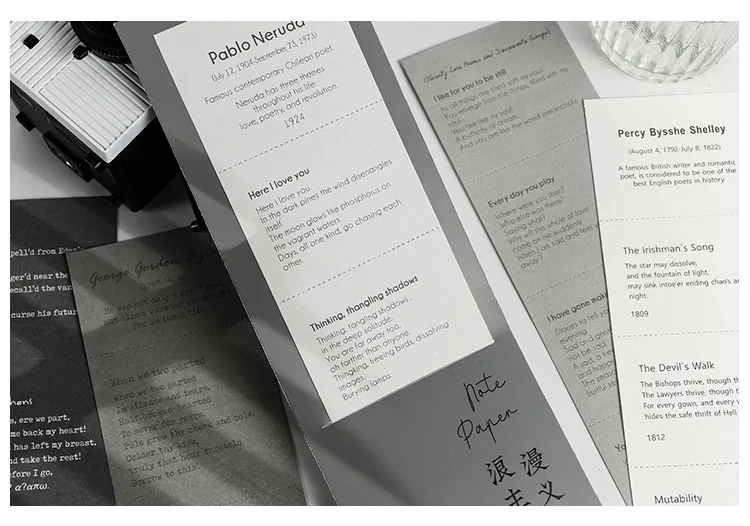 Pablo Neruda
(July 12, 1904-September 23, 1973)
Famous contemporary Chilean poet.
Neruda has three themes
throughout his life:
love, poetry, and revolution.
1924
Here I love you
Here I love you.
In the dark pines the wind disenangles
itself.
The moon glows like phosphorus on
the vagrant waters.
Days, all one kind, go chasing each
other.
Thinking, thangling shadows
Thinking, tangling shadows ,
in the deep solitude.
You are far away too,
oh farther than anyone.
Thingking, freeing birds, dissolving
images,
Burying lamps.
Note
Paper
浪漫
主义
(Twenty Love Poems and Desperate Songs)
I like for you to be still
As all things are filled with my soul.
You emerge from the things, filled with my
soul.
You are like my soul.
A butterfly of dream.
And you are like the world melancholy
Every day you play
Where were you then?
Who else was there?
Saying what?
Why will the whole of love
come on me suddenly
When I am sad and feel
away?
I have gone
Stories to tell
evening.
Sad and
not be sad.
A sad,
and happy
The
fruitful
Percy Bysshe Shelley
(August 4, 1792-July 8, 1822)
A famous British writer and romantic
poet, is considered to be one of the
best English poets in history.
The Irishman`s Song
The star may dissolve,
and the fountain of light,
may sink intoe'er ending chao's
night.
1809
The Devil`s Walk
The Bishops thrive, though
The Lawyers thrive, though
For every gown, and every
hides the safe thrift of Hell
1812
Mutability
George Gordon Byron
He was not only a
but also a warrior who
for an ideal life.
When we two parted
When we two parted
In silence and tears,
Half broken-hearted
To sever for years.
Pale grew thy cheek and cold,
Colder thy kiss,
truly that hour foretold
Sorrow to this!
pell'd from Eden'
ger'd near the
ecall'd the
curse his futur
hens
s, ere we part,
me back my heart!
has left my breast,
nd take the rest!
efore I go,